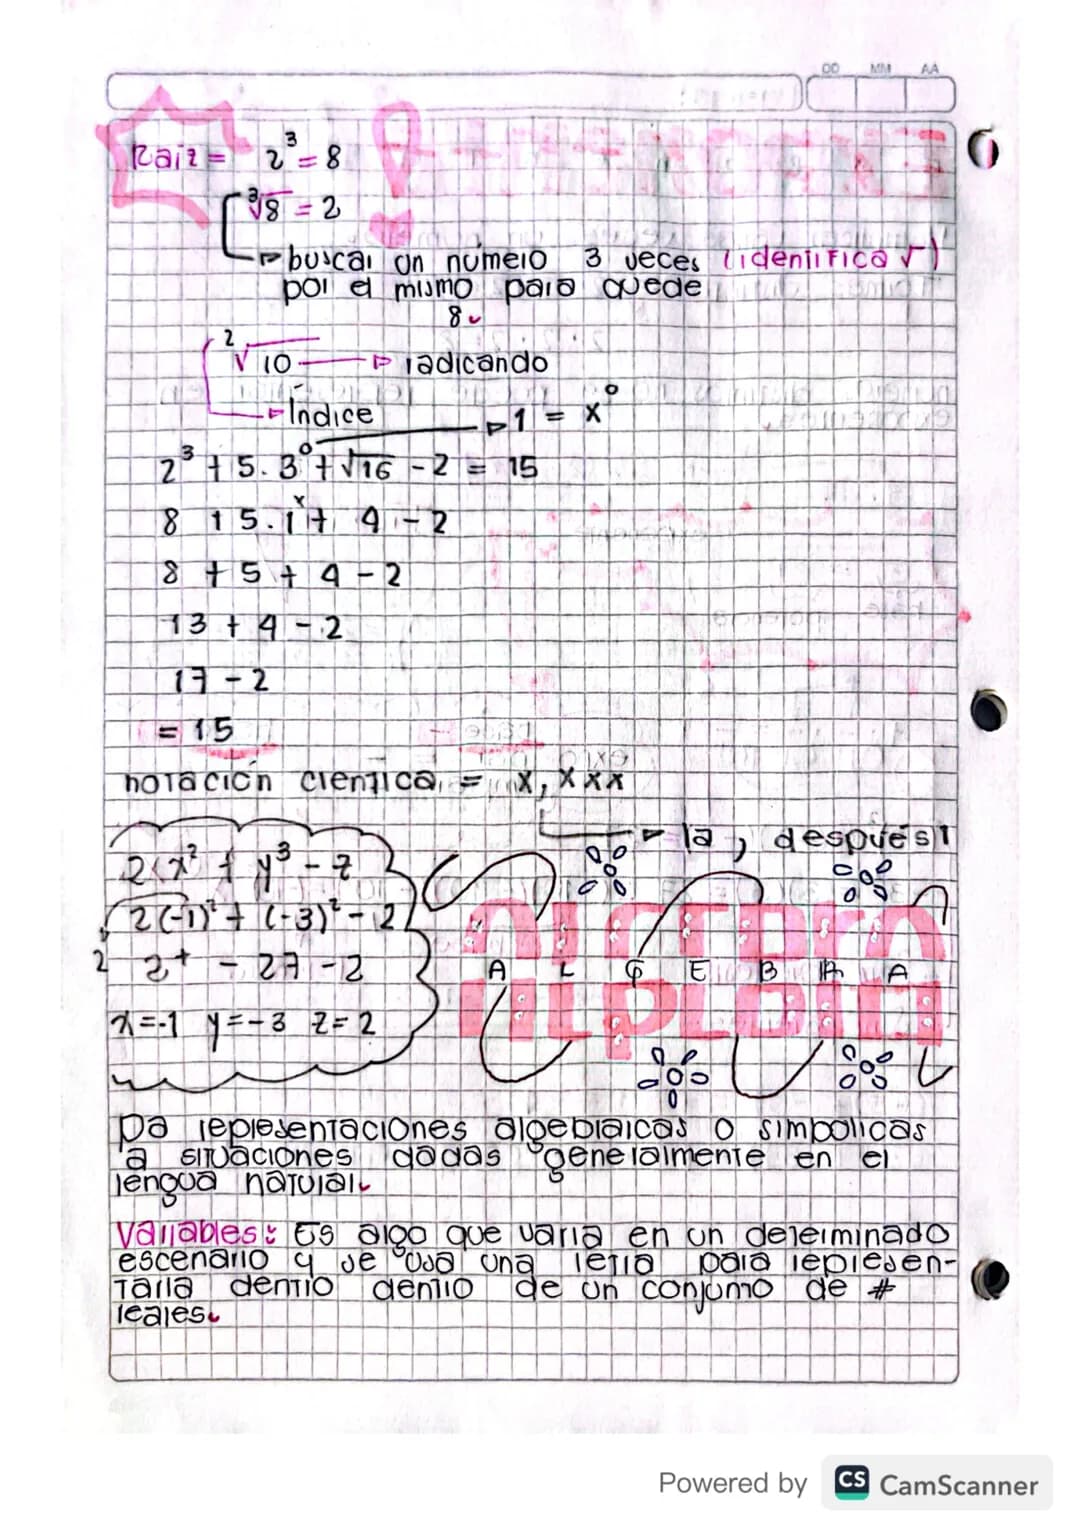 DD MM AA
Raiz = 2³ = 8
³√8 = 2
buscar un número 3 veces (identifica √)
por el mismo para quede
8
²√10 → radicando
Índice
1 = x⁰
2³ + 5 · 3⁰ + √16 - 2 = 15
8 + 5 · 1 + 4 - 2
8 + 5 + 4 - 2
13 + 4 - 2
17 - 2
= 15
notación cientica = x, xxx
la , después 1
2(x² + y³ - z
2(-1)² + (-3)² - 2
2 2+ - 27 - 2
x=-1 y=-3 z=2
A L G E B R A
Da representaciones algebraicas o simbolicas
a situaciones dadas generalmente en el
lengua natural.
Variables: Es algo que varia en un determinado
escenario y se usa una letra para represen-
tarla dentro dentro de un conjunto de #
reales.
Powered by CS CamScanner